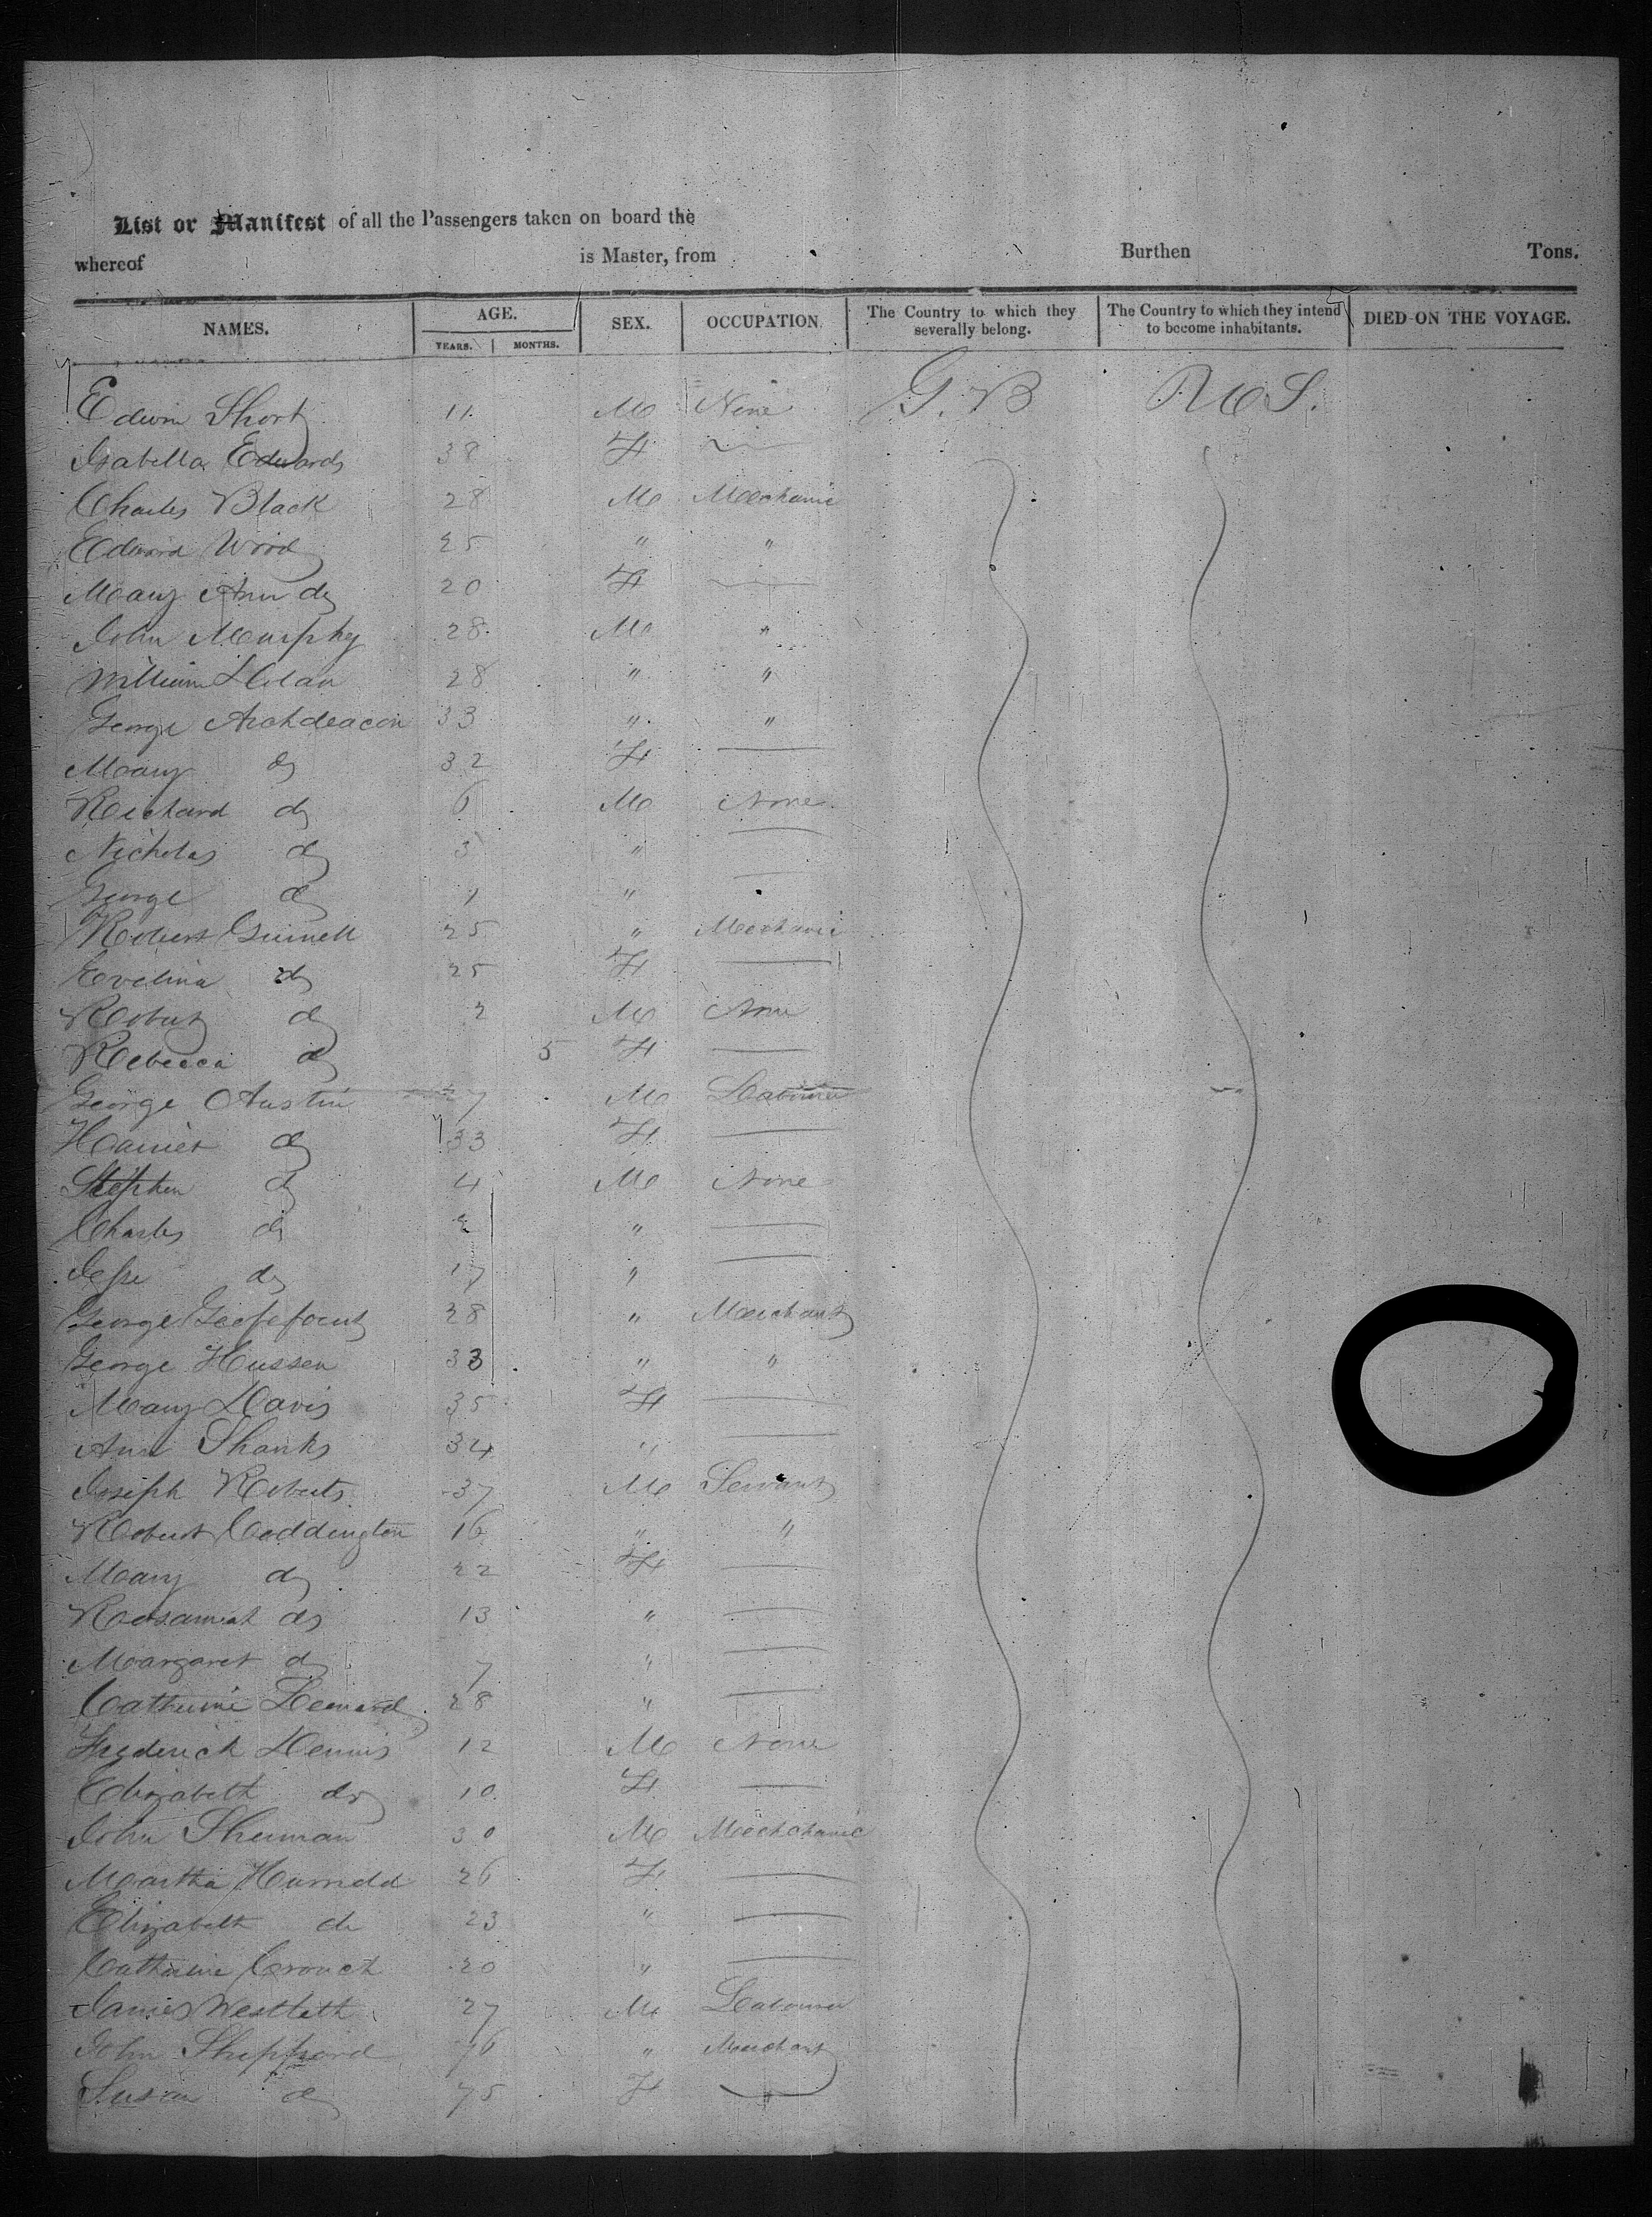 List or Manifest of all the Passengers taken on board the
whereof is Master, from Burthen Tons.
NAMES. AGE. YEARS. MONTHS. SEX. OCCUPATION. The Country to which they severally belong. The Country to which they intend to become inhabitants. DIED ON THE VOYAGE.
Edwin Short 11 M None G.B U.S.
Isabella Edwards 38 F
Charles Black 28 M Mechanic
Edward Wood 25 " "
Mary Ann do 20 F
John Murphy 28 M "
William 28 " "
George Archdeacon 33 " "
Mary do 32 F
Richard do 6 M None
Nicholas do 3 "
George do 1 "
Robert 25 " Mechanic
Evelina do 25 F
Robert do 2 M None
Rebecca do 5 F
George Austin 7 M Labourer
Harriet do 33 F
Stephen do 4 M None
Charles do "
Jesse do "
George 28 " Merchant
George Hussen 33 " "
Mary Davis 35 F
Ann Shanks 34 "
Joseph Roberts 37 M Servant
Robert Coddington 16 " "
Mary do 22 F
do 13 "
Margaret do 7 "
Catherine Leonard 28 "
Frederick Dennis 12 M None
Elizabeth do 10 F
John Sherman 30 M Mechchanic
Martha 26 F
Elizabeth do 23 "
Catherine Crouch 20 "
James 27 M Labourer
John Sheppard 76 " Merchant
Susan do 75 F